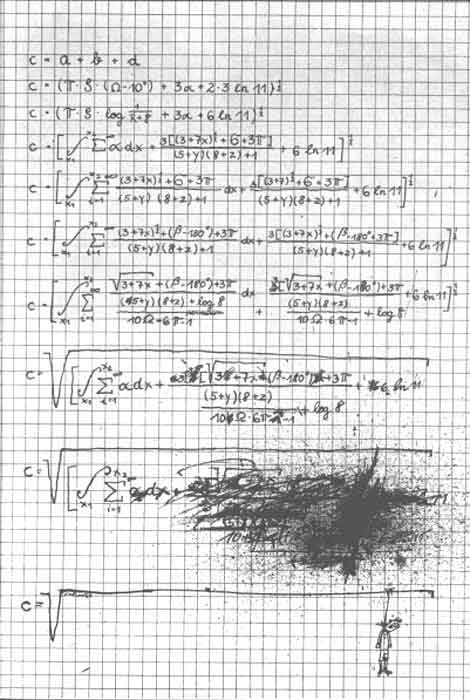 c = a + b + d
c = (π · S · (Ω-10°) + 3α + 2·3 ln 11)^½
c = (π · S · log + 3α + 6 ln 11)^½
c = [∫ₓ₁^x₂ Σ^∞ α dx + 3[(3+7x)^½+6+3π] / (5+y)(8+z)+1 + 6 ln 11]^½
c = [∫ₓ₁^x₂ Σᵢ₌₁^∞ (3+7x)^½+6+3π / (5+y)(8+z)+1 dx + 3[(3+7x)^½+6+3π] / (5+y)(8+z)+1 + 6 ln 11]^½
c = [∫ₓ₁^x₂ Σᵢ₌₁^∞ (3+7x)^½+(β-180°)+3π / (5+y)(8+z)+1 dx + 3[(3+7x)^½+(β-180°+3π] / (5+y)(8+z)+1 + 6 ln 11]^½
c = [∫ₓ₁^x₂ Σᵢ₌₁^∞ √3+7x +(β-180°)+3π / (5+y)(8+z)+log 8 / 10Ω·6π-1 dx + [√3+7x +(β-180°)+3π / (5+y)(8+z) / 10Ω·6π-1 + log 8 + 6 ln 11]^½
c = √[∫ₓ₁^x₂ Σᵢ₌₁^∞ α dx + 3[√3+7x (β-180°)+3π / (5+y)(8+z) / 10Ω·6π-1 + log 8 + 6 ln 11
c = √[∫ₓ₁^x₂ Σᵢ₌₁^∞ dx +
c = √